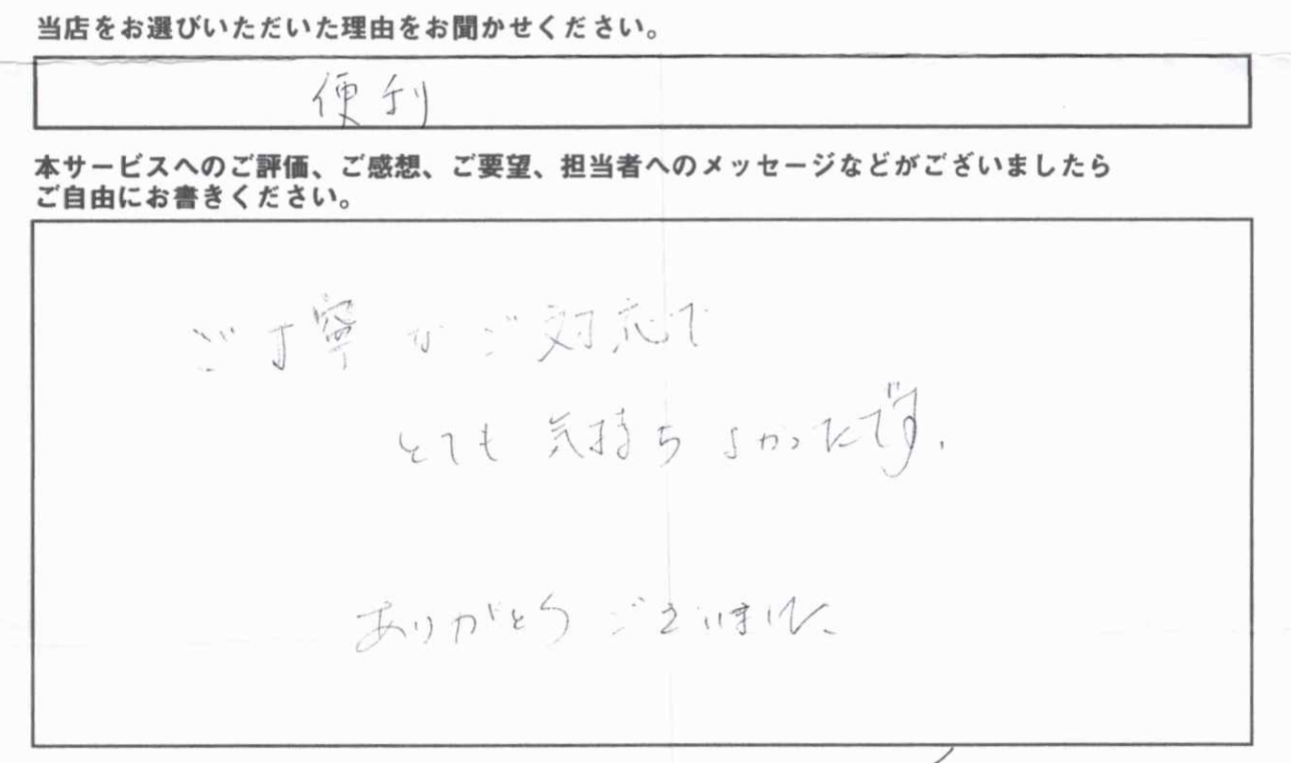 当店をお選びいただいた理由をお聞かせください。
便利
本サービスへのご評価、ご感想、ご要望、担当者へのメッセージなどがございましたら
ご自由にお書きください。
ご丁寧なご対応で
とても気持ちよかったです。
ありがとうございました。